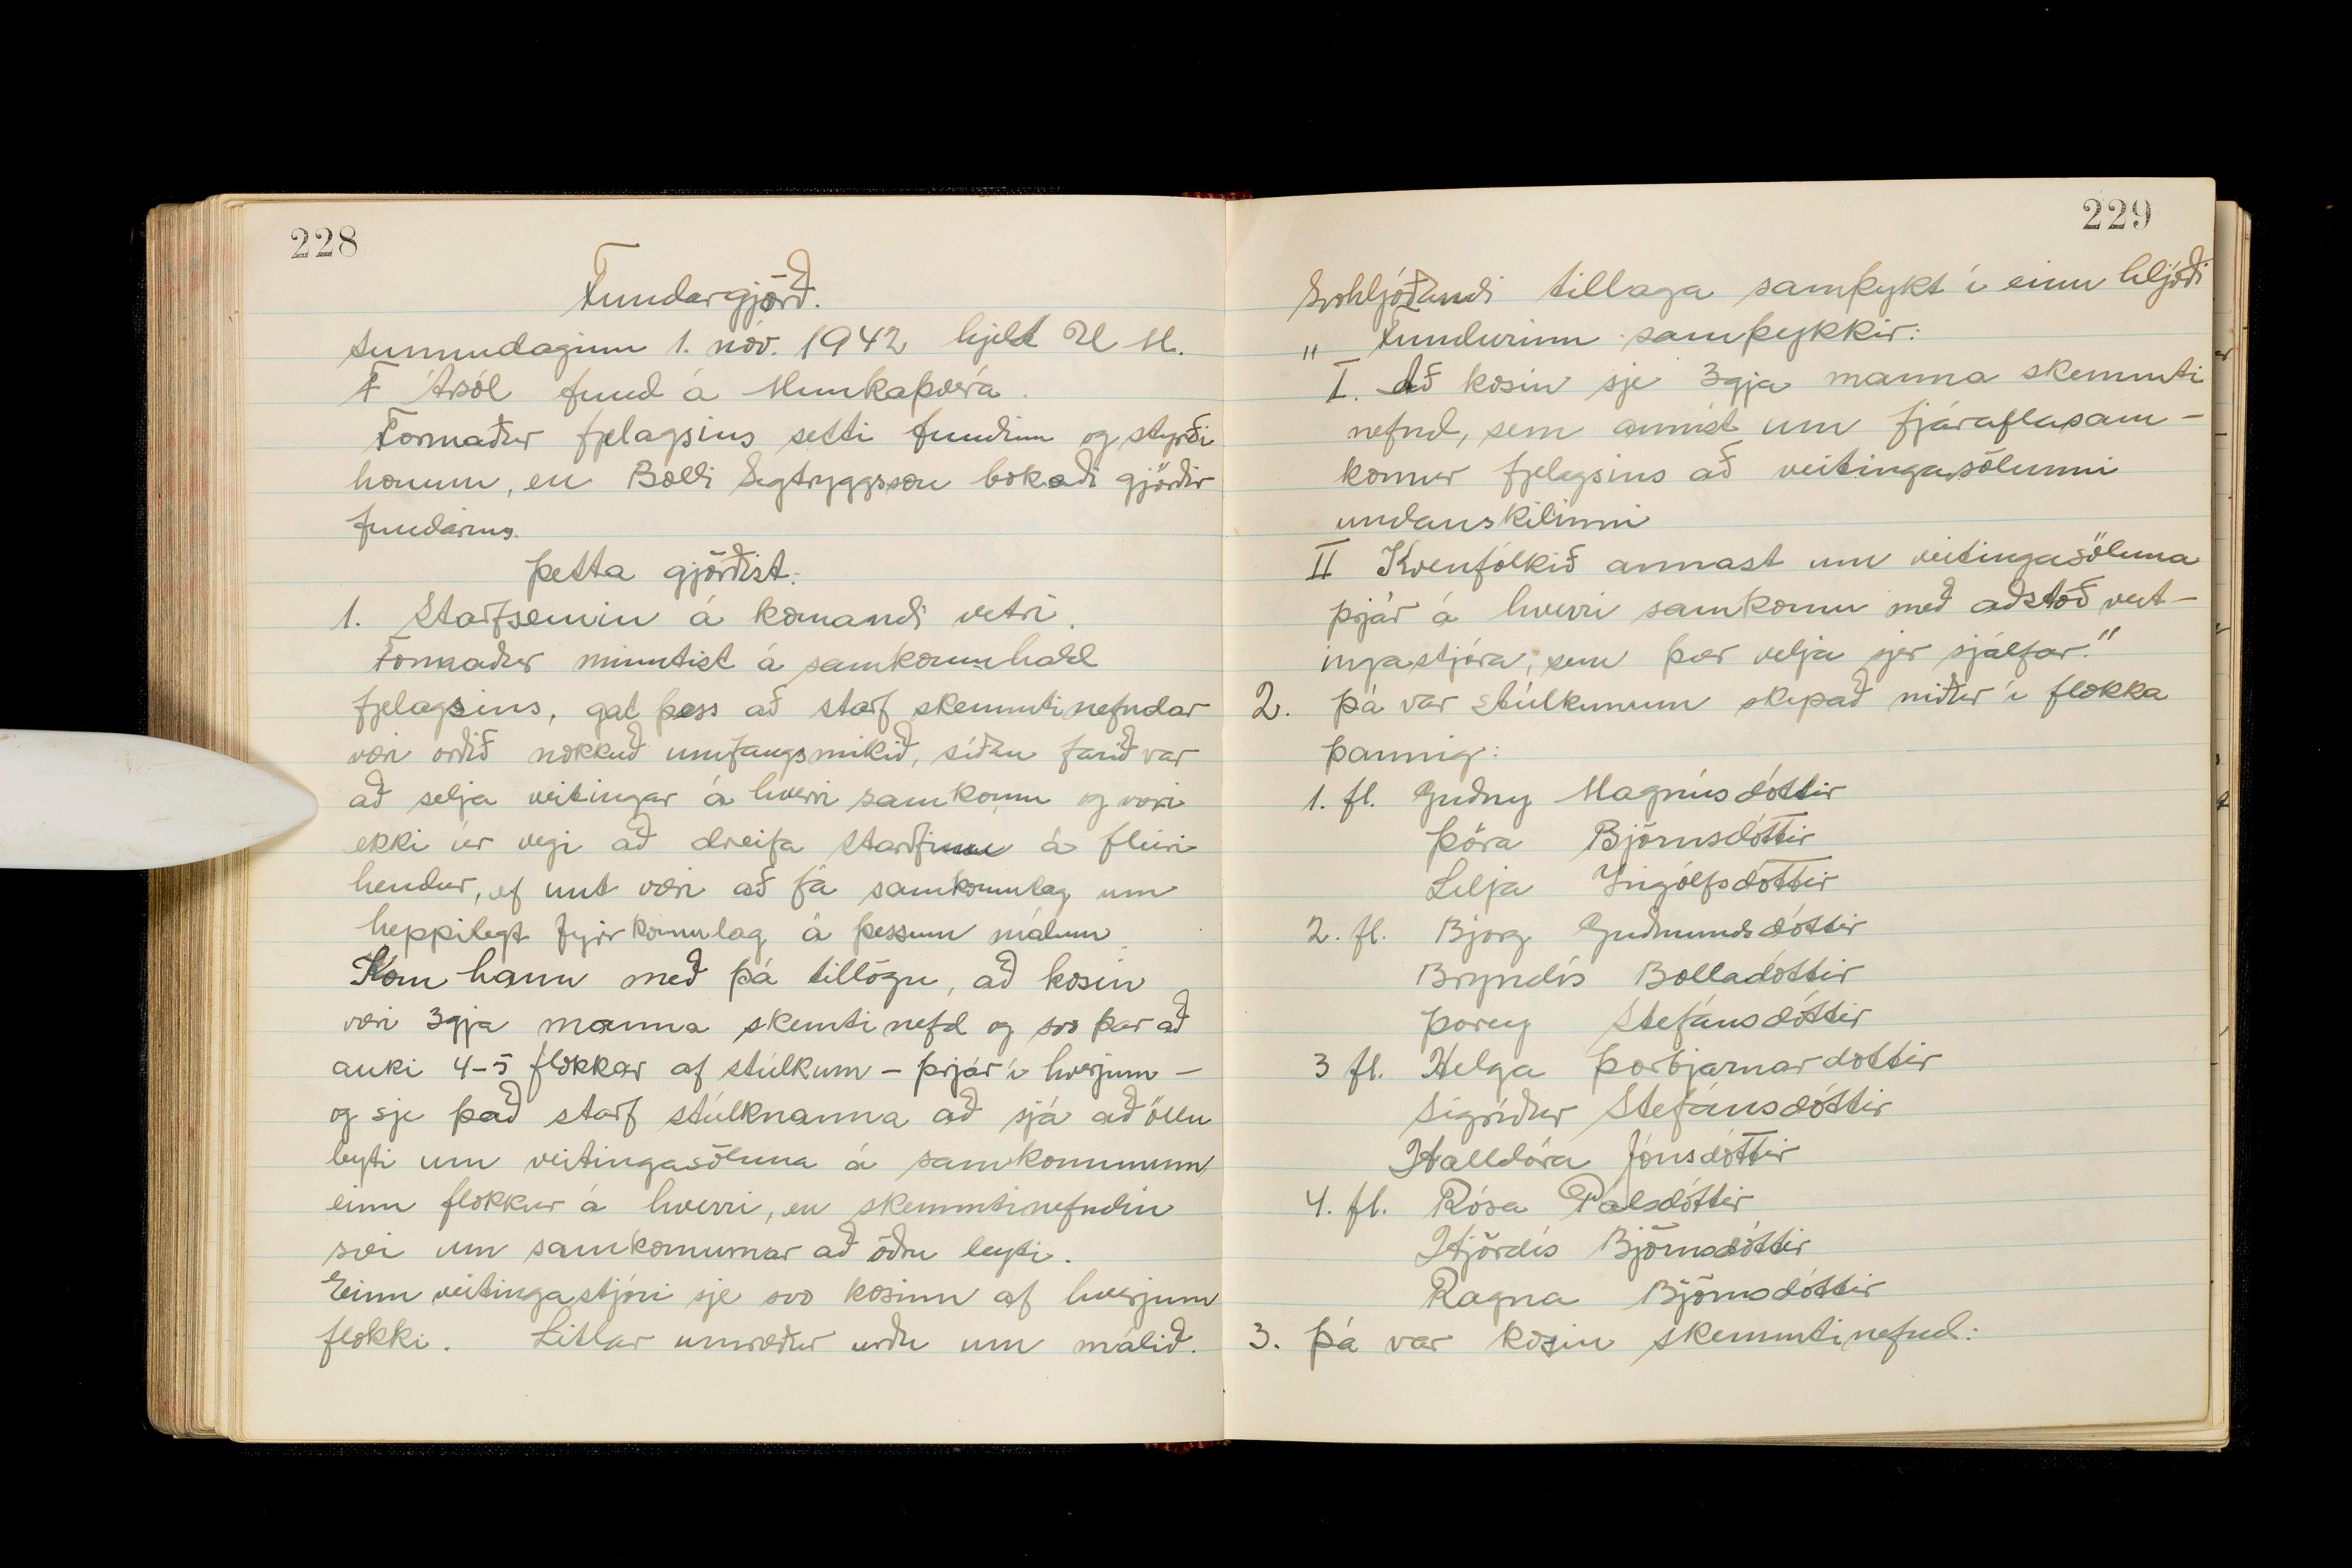 228
Fundargjörð.
Sunnudaginn 1. nóv. 1942 hjelt U M.
F Ársól fund á Munkaþverá.
Formaður fjelagsins setti fundinn og stýrði
honum, en Bolli Sigtryggsson bókaði gjörðir
fundarins.
Þetta gjörðist:
1. Starfsemin á komandi vetri.
Formaður minntist á samkomuhald
fjelagsins, gat þess að starf skemmtinefndar
væri orðið nokkuð umfangsmikið, síðan farið var
að selja veitingar á hverri samkomu og væri
ekki úr vegi að dreifa starfinu á fleiri
hendur, ef unt væri að fá samkomulag um
heppilegt fyrirkomulag á þessum málum.
Kom hann með þá tillögu, að kosin
væri 3gja manna skemtinefd og svo þar að
auki 4-5 flokkar af stúlkum – þrjár í hverjum –
og sje það starf stúlknanna að sjá að öllu
leyti um veitingasöluna á samkomunum,
einn flokkur á hverri, en skemmtinefndin
sæi um samkomurnar að öðru leyti.
Einn veitingastjóri sje svo kosinn af hverjum
flokki. Litlar umræður urðu um málið.
229
Svohljóðandi tillaga samþykt í einu hljóði
„ Fundurinn samþykkir:
I. Að kosin sje 3gja manna skemmti
nefnd, sem annist um fjáraflasam-
komur fjelagsins að veitingasölunni
undanskilinni
II Kvenfólkið annast um veitingasöluna
þrjár á hverri samkomu með aðstoð veit-
ingastjóra, sem þær velja sjer sjálfar."
2. Þá var stúlkunum skipað niður í flokka
þannig:
1. fl. Guðný Magnúsdóttir
Þóra Björnsdóttir
Lilja Ingólfsdóttir
2. fl. Björg Guðmundsdóttir
Bryndís Bolladóttir
Þórey Stefánsdóttir
3 fl. Helga Þorbjarnardóttir
Sigríður Stefánsdóttir
Halldóra Jónsdóttir
4. fl. Rósa Pálsdóttir
Hjördís Björnsdóttir
Ragna Björnsdóttir
3. Þá var kosin skemmtinefnd: